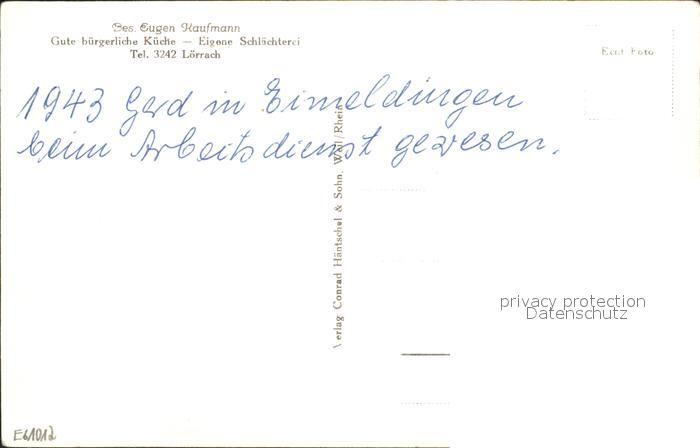 Bes. Eugen Kaufmann
Gute bürgerliche Küche — Eigene Schlächterei
Tel. 3242 Lörrach
Echt Foto
1943 Gerd in Eimeldingen
beim Arbeitsdienst gewesen.
Verlag Conrad Häntschel & Sohn, Weil/Rhein
privacy protection
Datenschutz
E61012